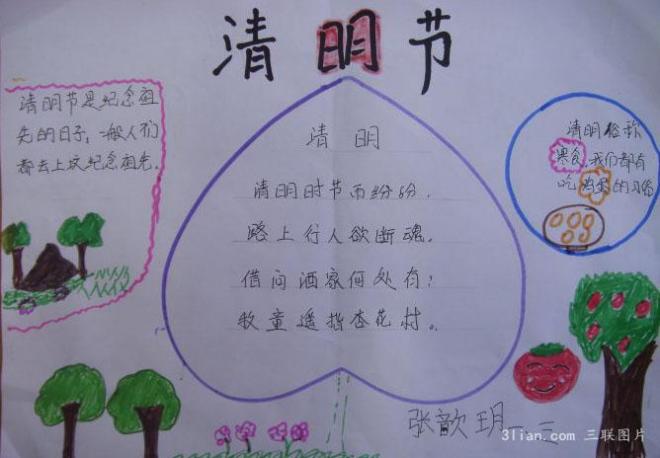 清明节
清明节是纪念祖
先的日子，一般人们
都去上坟纪念祖先.
清 明
清明时节雨纷纷.
路上行人欲断魂.
借问酒家何处有:
牧童遥指杏花村。
清明俗称
寒食.我们都有
吃鸡蛋的习俗
张歆玥 一 三
3lian.com 三联图片